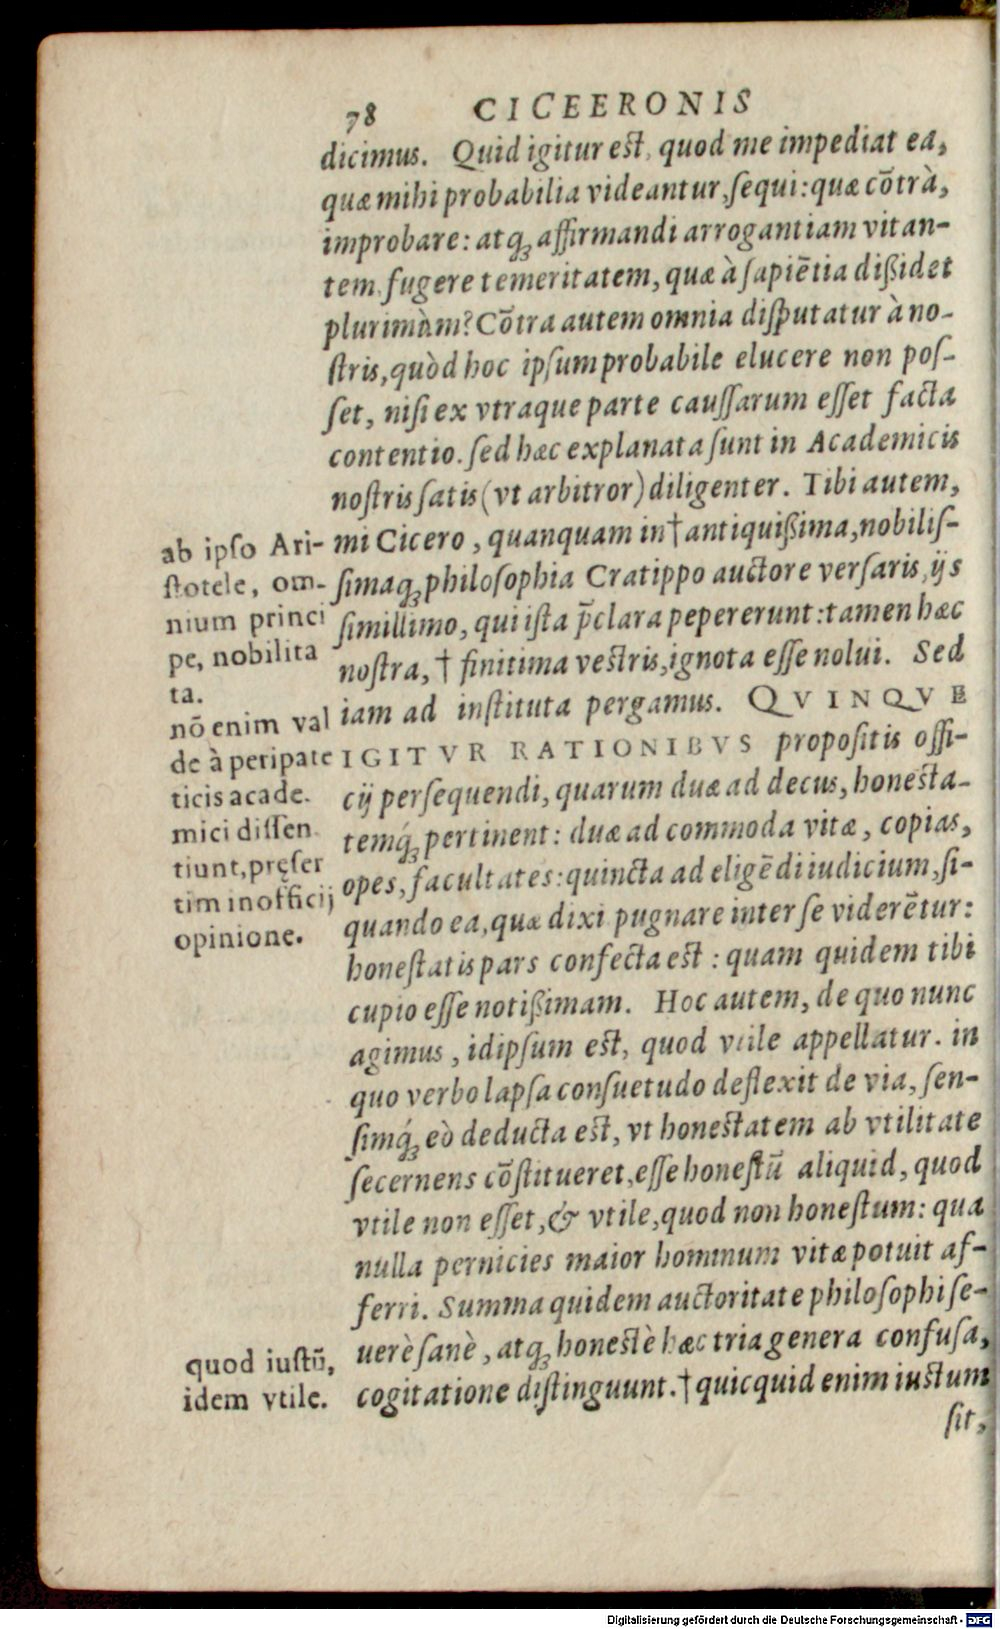 78 CICEERONIS
dicimus. Quid igitur est, quod me impediat ea,
quæ mihi probabilia videantur, sequi: quæ cõtrà,
improbare: atq; affirmandi arrogantiam vitan-
tem fugere temeritatem, quæ à sapiẽtia dißidet
plurimùm? Cõtra autem omnia disputatur à no-
stris, quòd hoc ipsum probabile elucere non pos-
set, nisi ex vtraque parte caussarum esset facta
contentio. sed hæc explanata sunt in Academicis
nostris satis (vt arbitror) diligenter. Tibi autem,
mi Cicero, quanquam in † antiquißima, nobilis-
simaq; philosophia Cratippo auctore versaris, ijs
simillimo, qui ista p̃clara pepererunt: tamen hæc
nostra, † finitima vestris, ignota esse nolui. Sed
iam ad instituta pergamus. QVINQVE
IGITVR RATIONIBVS propositis offi-
cij persequendi, quarum duæ ad decus, honesta-
temq́; pertinent: duæ ad commoda vitæ, copias,
opes, facultates: quincta ad eligẽdi iudicium, si-
quando ea, quæ dixi pugnare inter se viderẽtur:
honestatis pars confecta est: quam quidem tibi
cupio esse notißimam. Hoc autem, de quo nunc
agimus, id ipsum est, quod vtile appellatur. in
quo verbo lapsa consuetudo deflexit de via, sen-
simq́; eò deducta est, vt honestatem ab vtilitate
secernens cõstitueret, esse honestũ aliquid, quod
vtile non esset, & vtile, quod non honestum: qua
nulla pernicies maior hominum vitæ potuit af-
ferri. Summa quidem auctoritate philosophi se-
uerè sanè, atq; honestè hæc tria genera confusa,
cogitatione distinguunt. † quicquid enim iustum
sit,
ab ipso Ari-
stotele, om-
nium princi
pe, nobilita
ta.
nõ enim val
de à peripate
ticis acade.
mici dissen
tiunt, pręser
tim in officij
opinione.
quod iustũ,
idem vtile.
Digitalisierung gefördert durch die Deutsche Forschungsgemeinschaft - DFG